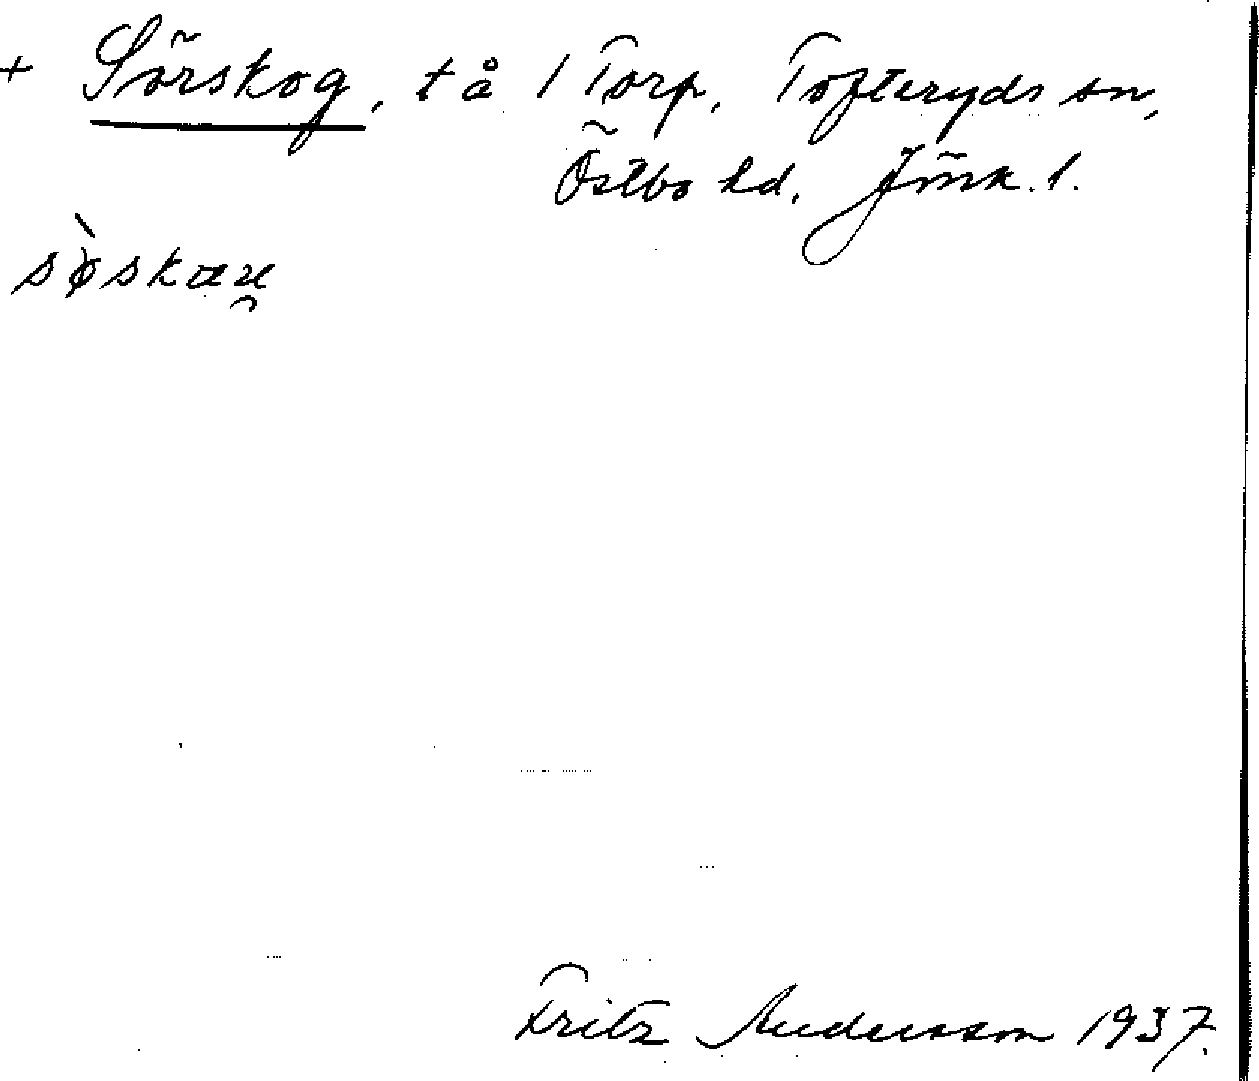 + Sörskog, tå / Torp, Tofteryds sn,
Östbo hd. Jönk. l.
Fritz Andersson 1937.